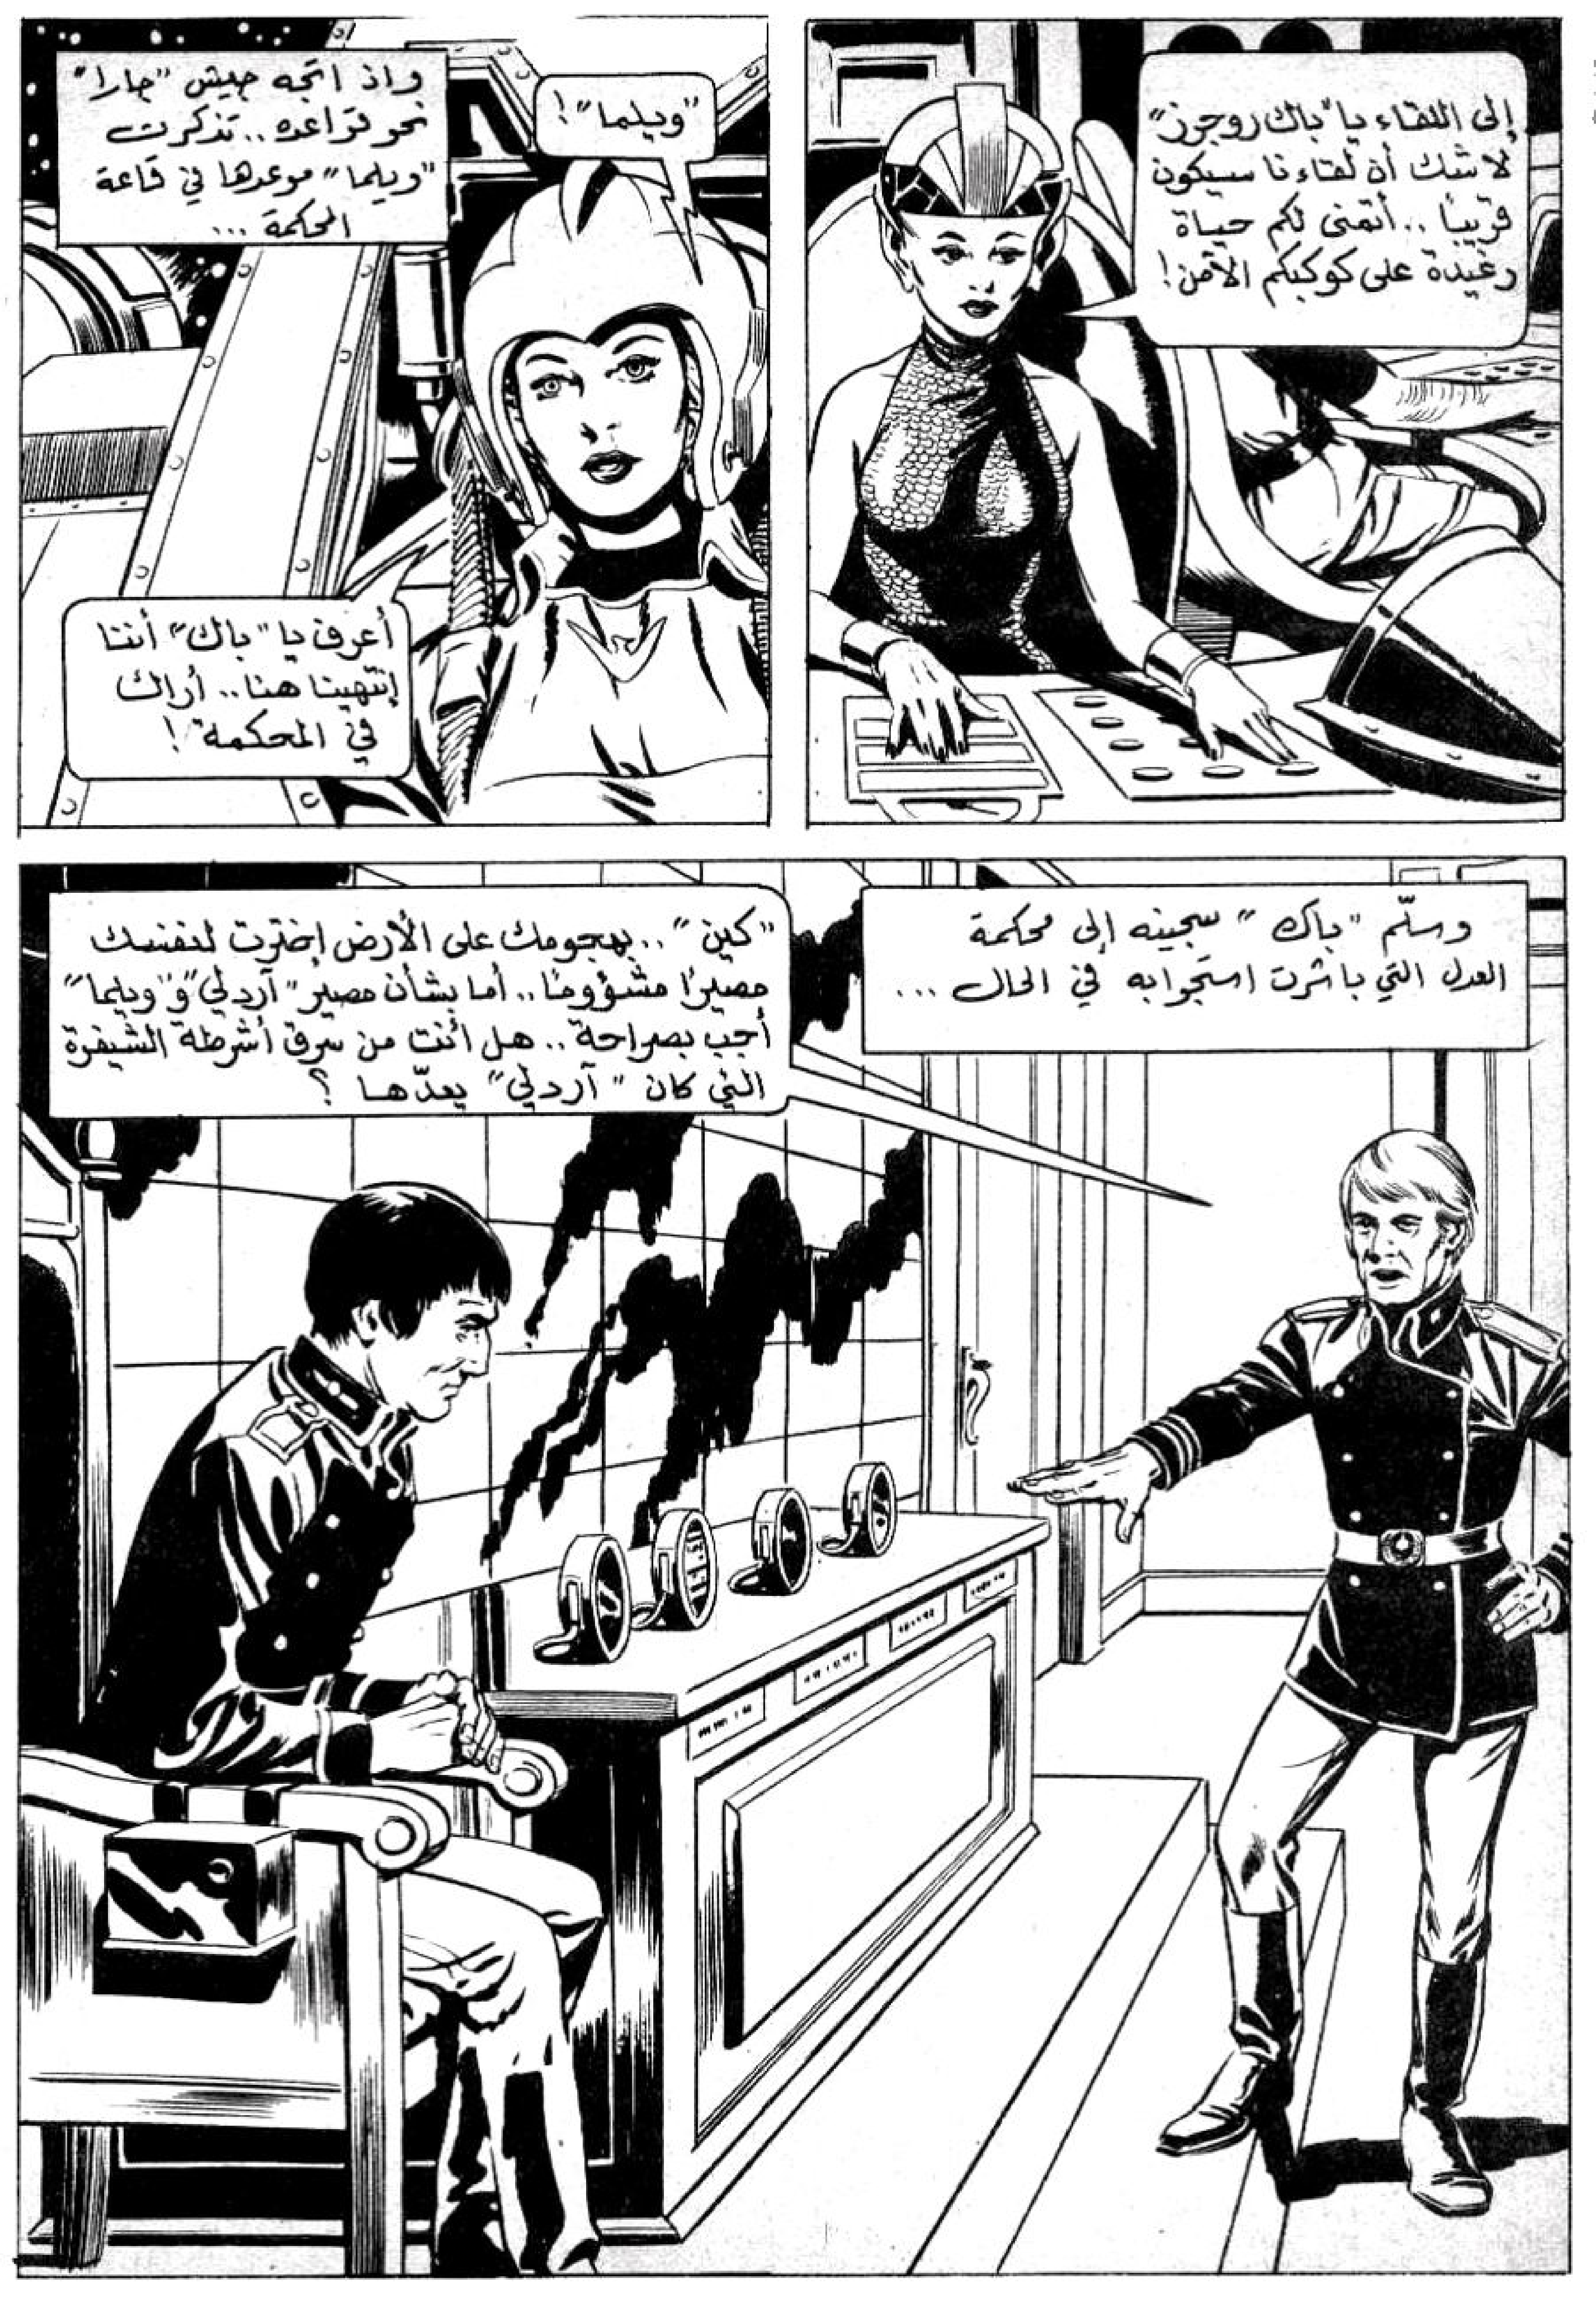 إلى اللقاء يا "باك روجرز"
لا شك أن لقاءنا سيكون
قريبًا .. أتمنى لكم حياة
رغيدة على كوكبكم الآمن!
واذ اتجه جيش "جارا"
نحو قواعده .. تذكرت
"ويلما" موعدها في قاعة
المحكمة ...
"ويلما"!
أعرف يا "باك" أننا
إنتهينا هنا .. أراك
في المحكمة!
وسلّم "باك" سجينه إلى محكمة
العدل التي باشرت استجوابه في الحال ...
"كين" .. بهجومك على الأرض إخترت لنفسك
مصيرًا مشؤومًا .. أما بشأن مصير "آردلي" و"ويلما"
أجب بصراحة .. هل أنت من سرق أشرطة الشيفرة
التي كان "آردلي" يعدّها ؟